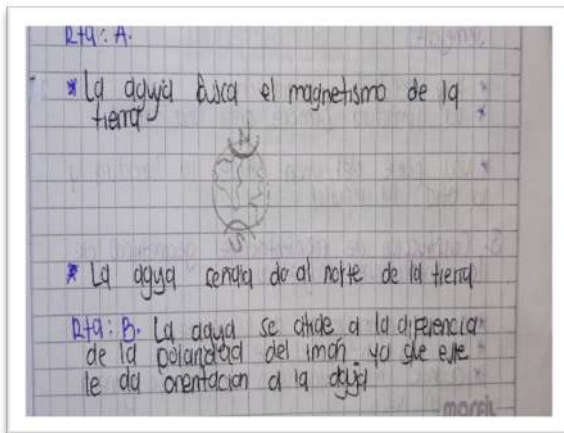 Rta: A.
* La aguja busca el magnetismo de la
tierra
N
S
* La aguja al norte de la tierra
Rta: B. La aguja se a la diferencia
de la polaridad del imán. ya que este
le da orientacion a la aguja
marfil